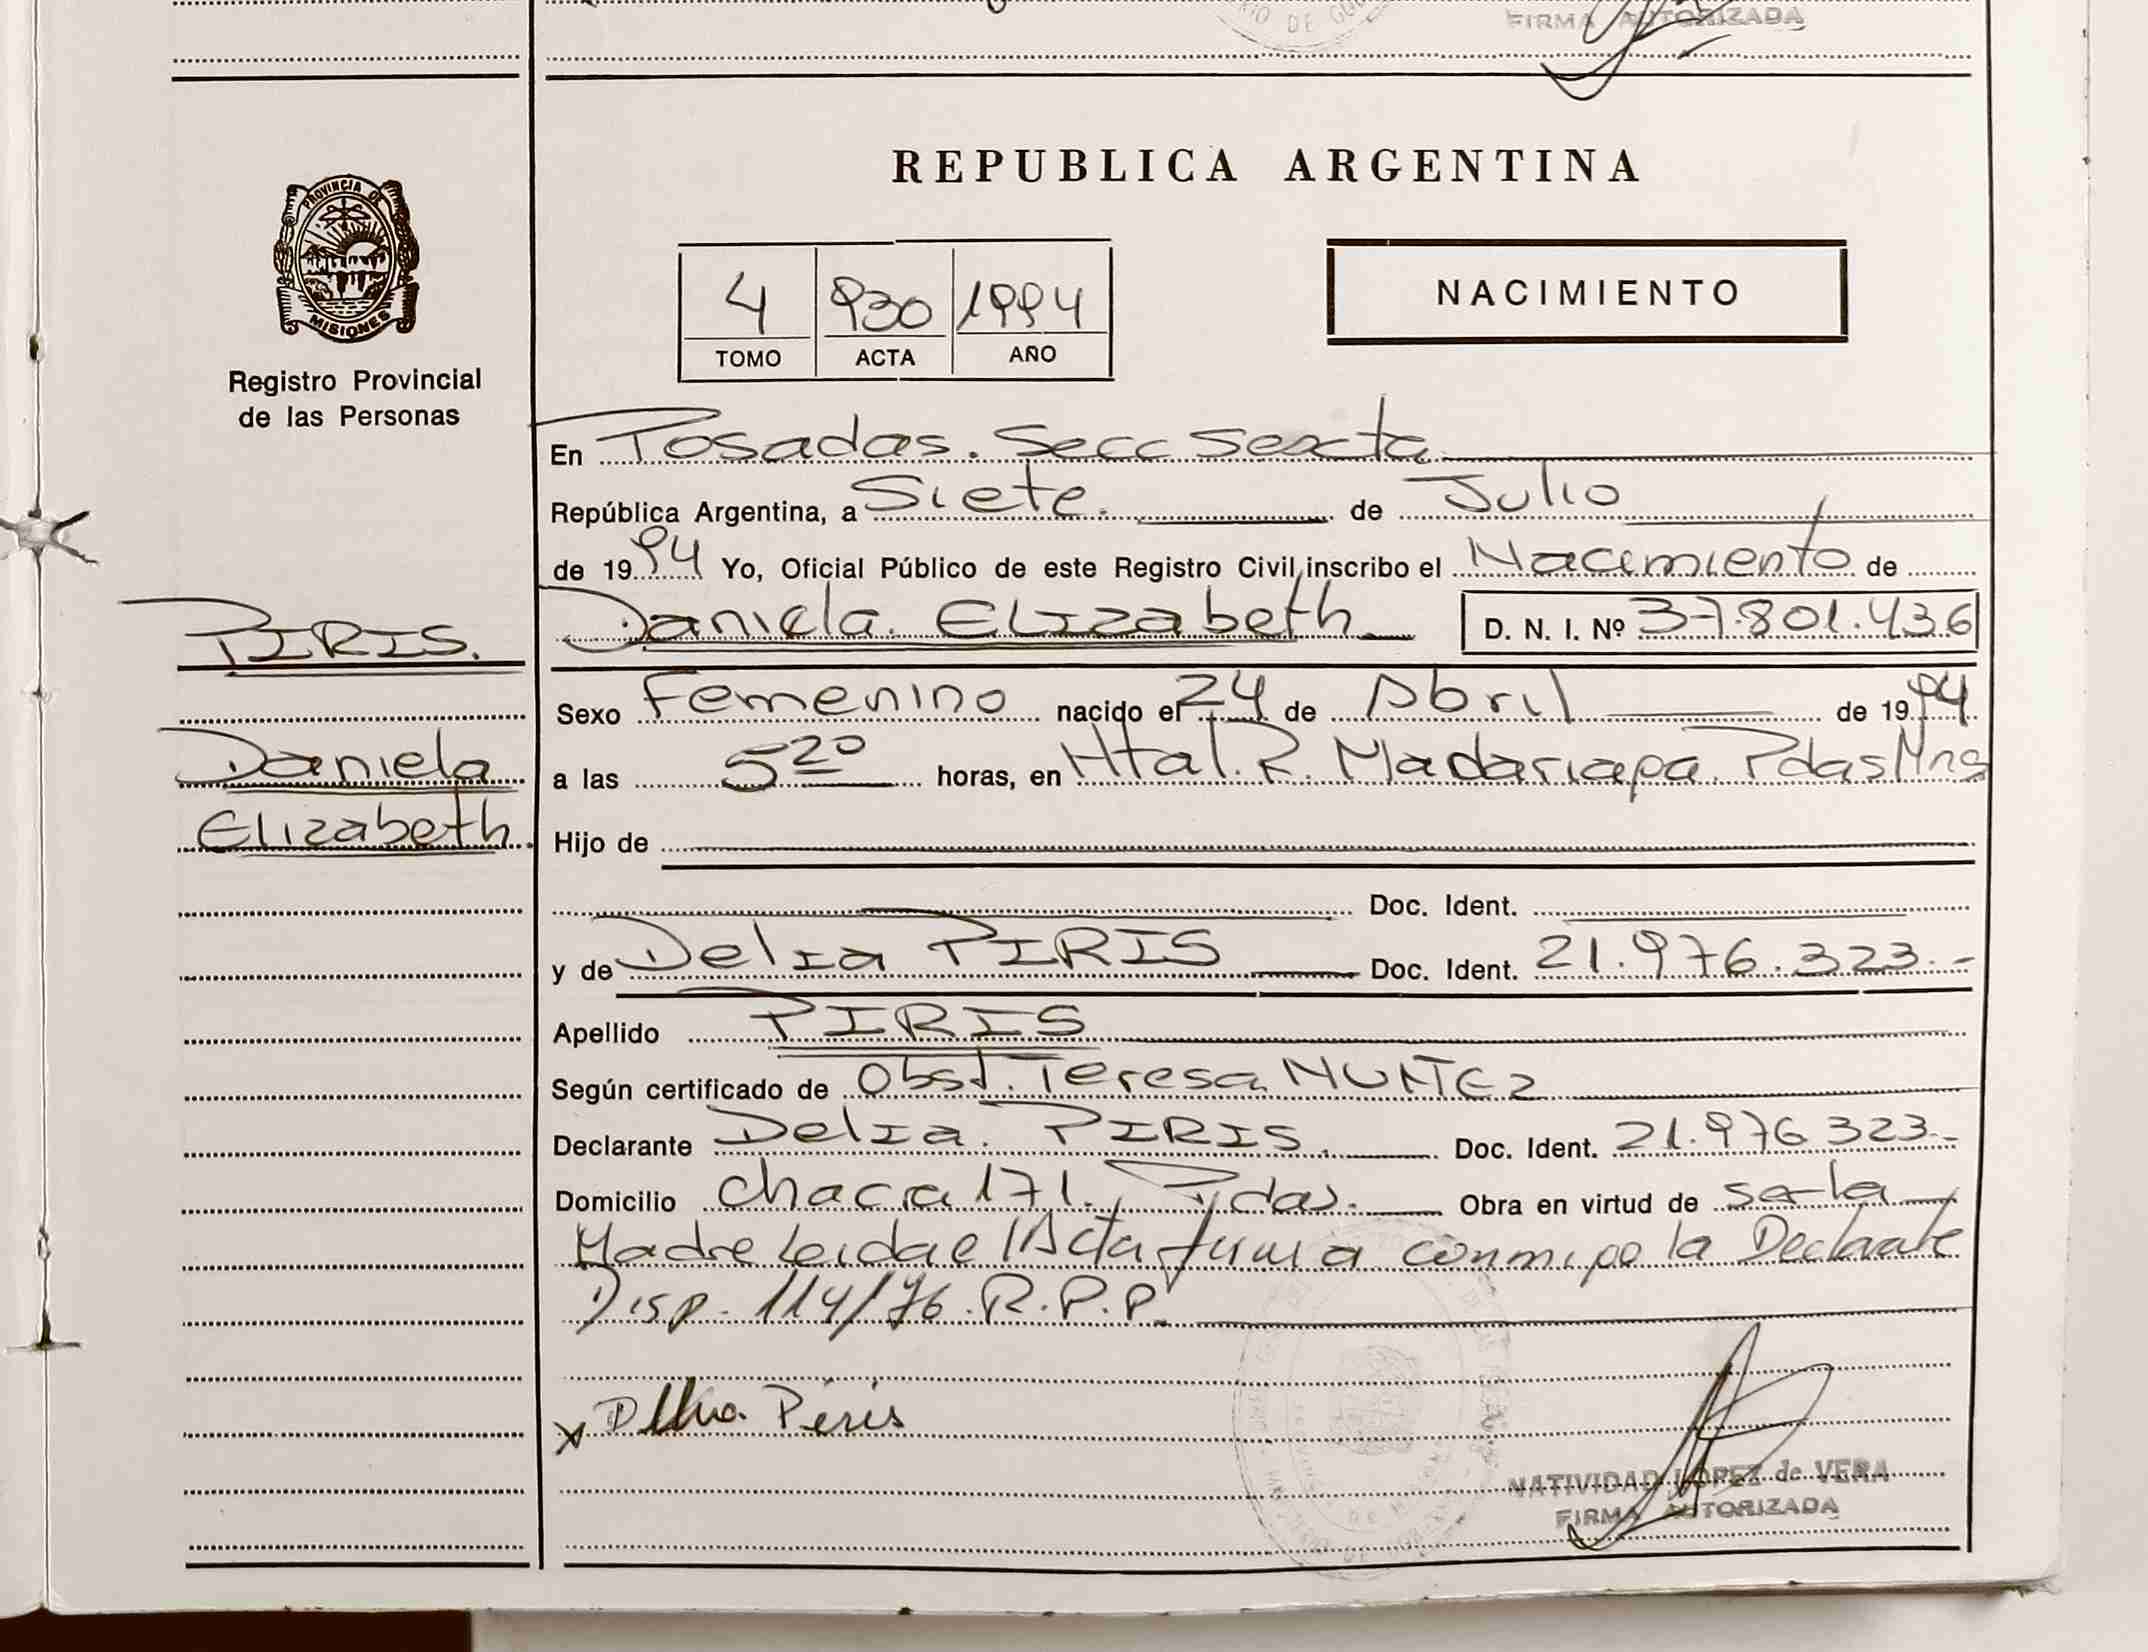 FIRMA AUTORIZADA
PROVINCIA DE
MISIONES
Registro Provincial
de las Personas
REPUBLICA ARGENTINA
NACIMIENTO
4 930 1994
TOMO ACTA AÑO
En Posadas. Secc Sexta
República Argentina, a Siete. de Julio
de 1994 Yo, Oficial Público de este Registro Civil, inscribo el Nacimiento de
PIRIS.
Daniela
Elizabeth.
Daniela. Elizabeth D. N. I. Nº 37.801.436
Sexo Femenino nacido el 24 de Abril de 1994
a las 5 20 horas, en Htal. R. Madariaga. Pdas Mns
Hijo de
Doc. Ident.
y de Delia PIRIS Doc. Ident. 21.976.323.-
Apellido PIRIS
Según certificado de Obst. Teresa NUÑEZ
Declarante Delia. PIRIS. Doc. Ident. 21.976 323.-
Domicilio Chacra 171. Pdas. Obra en virtud de ser la
Madre Leida el Acta firma conmigo la Declarante
Disp. 114/76. R.P.P.
x Piris
NATIVIDAD LOPEZ de VERA
FIRMA AUTORIZADA